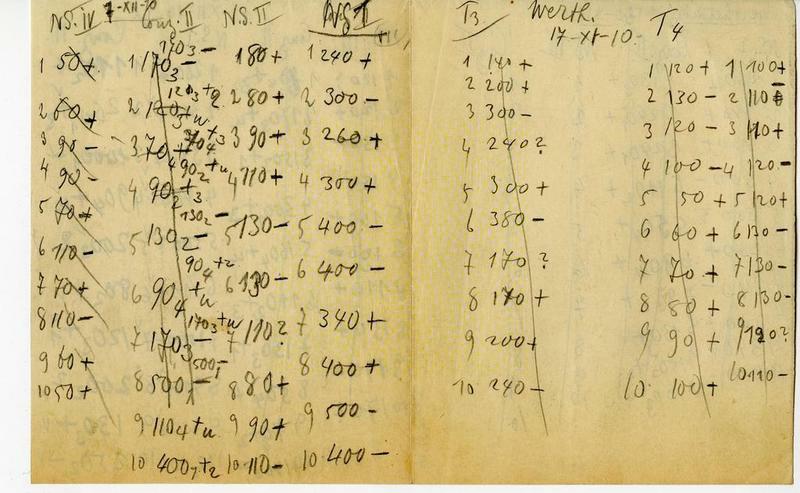 NS. IV
7-XII-10
II
NS. II
NS I
1 50+
2 60+
3 90-
4 90-
5 70+
6 110-
7 70+
8 110-
9 60+
10 50+
1703-
1 1703-
2 120
3 70+
4 902
1302-
5 1302-
904+2
6 904+u
1703+u
7 1703-
500-
8 500-
9 1104+u
10 4007+2
1 180+
2 80+
3 90+
4 110+
5 130-
6 130-
7 110?
8 80+
9 90+
10 110-
1 240+
2 300-
3 260+
4 300+
5 400-
6 400-
7 340+
8 400+
9 500-
10 400-
T3
Werth.
17-XI-10.
T4
1 140+
2 200+
3 300-
4 240?
5 300+
6 380-
7 170?
8 170+
9 200+
10 240-
1 120+
2 130-
3 120-
4 100-
5 50+
6 60+
7 70+
8 80+
9 90+
10 100+
1 100+
2 110
3 110+
4 120-
5 120+
6 130-
7 130-
8 130-
9 120?
10 110-